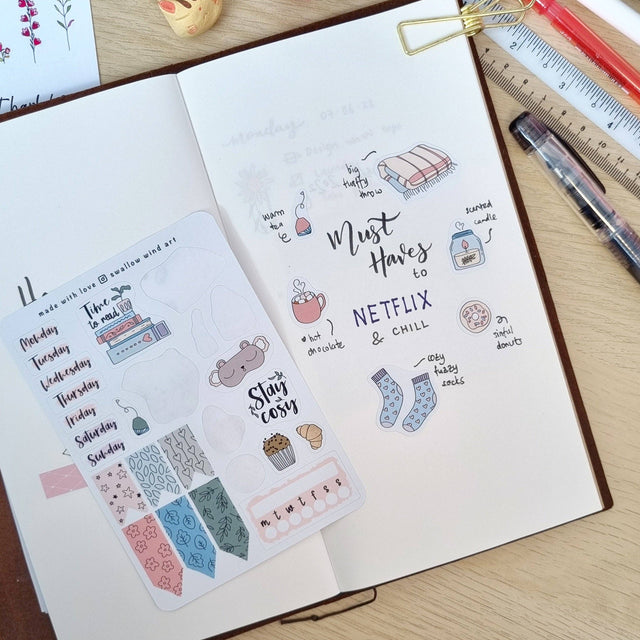 big
fluffy
throw
warm
tea
scented
candle
Must
Haves
to
NETFLIX
& CHILL
hot
chocolate
sinful
donuts
cozy
fuzzy
socks
made with love swallow wind art
Monday
Tuesday
Wednesday
Thursday
Friday
Saturday
Sunday
Time
to read
Stay
cosy
m t w t f s s
monday
1 2 3 4